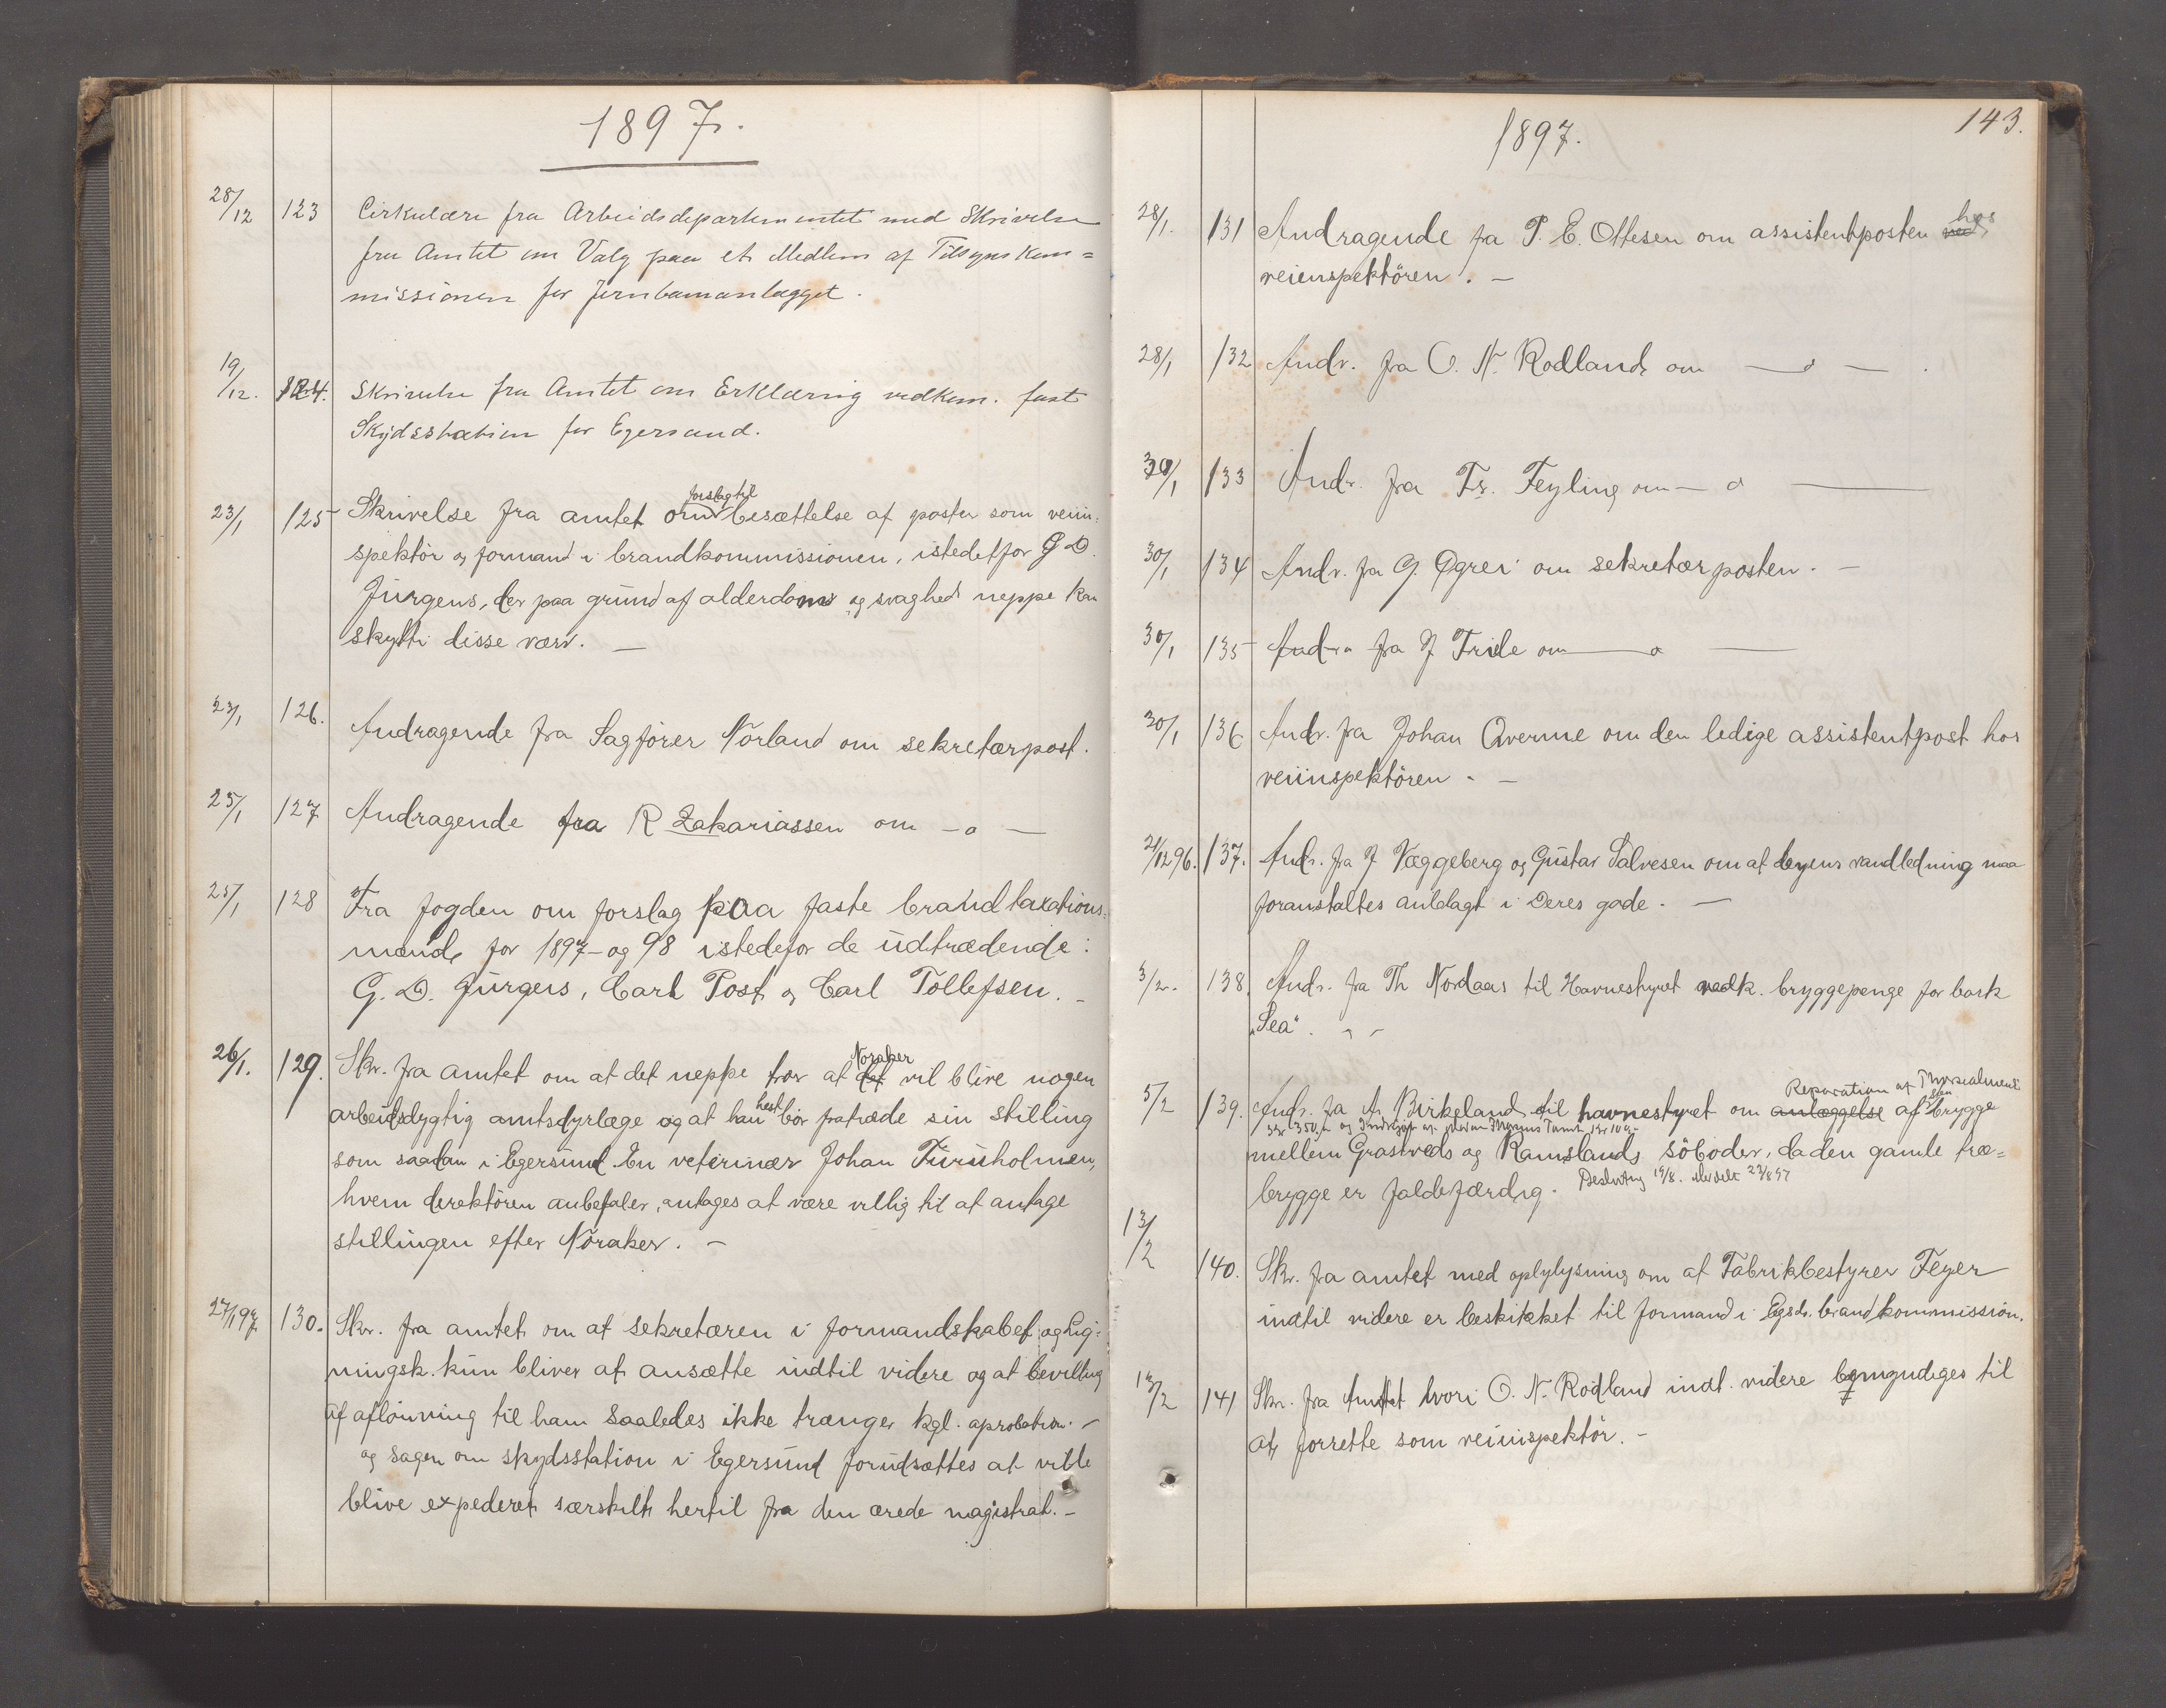 1897.
28/12 123 Cirkulære fra Arbeidsdepartementet med Skrivelse
fra Amtet om Valg paa et Medlem af Tilsynskom=
missionen for Jernbaneanlægget.
19/12. 124. Skrivelse fra Amtet om Erklæring vedkom. fast
Skydsstation for Egersund.
forslag til
23/1 125 Skrivelse fra amtet om besættelse af posten som veiin-
spektör og formand i brandkommissionen, istedetfor G D.
Jürgens, der paa grund af alderdoms og svaghed neppe kan
skytte disse værv. —
23/1 126. Andragende fra Sagförer Nörland om sekretærpost.
25/1 127 Andragende fra R Zakariassen om — o —
25/1 128 Fra fogden om forslag paa faste brandtaxations-
mænd for 1897- og 98 istedefor de udtrædende:
G. D. Jürgens, Carl Post og Carl Tollefsen. -
Noraker
26/1. 129. Skr. fra amtet om at det neppe tror at det vil blive nogen
arbeidsdygtig amtsdyrlæge og at han helst bör fratræde sin stilling
som saadan i Egersund. En veterinær Johan Furuholmen,
hvem derektören anbefaler, antages at være villig til at antage
stillingen efter Nöraker. —
27/1 97 130. Skr. fra amtet om at sekretæren i formandskabet og Lig-
ningsk. kun bliver at ansætte indtil videre og at bevilling
af aflönning til ham saaledes ikke trænger kgl. aprobation. -
og sagen om skydsstation i Egersund forudsættes at ville
blive expederet særskilt hertil fra den ærede magistrat. -
143.
1897.
hos
28/1. 131 Andragende fra P. E. Ottesen om assistentposten ved
veiinspektören. —
28/1 132 Andr. fra O. N. Rodland om — o — .
30/1 133 Andr. fra Fr. Feyling om — o —
30/1 134 Andr. fra G. Ögrei om sekretærposten. —
30/1 135 Andra fra J Tride om — o —
30/1 136 Andr. fra Johan Qverme om den ledige assistentpost hos
veiinspektören. —
21/12 96. 137. Andr. fra J Væggeberg og Gustav Salvesen om at byens vandledning maa
foranstaltes anlagt i Deres gade. —
3/2. 138. Andr. fra Th Nordaas til Havnestyret vedk. bryggepenge for bark
„Sea".
Reparation af
5/2 139. Andr. fra A. Birkeland til havnestyret om anlæggelse af den brygge
mellem Grastveds og Ramslands söboder, da den gamle træ=
brygge er faldefærdig. Beslutning 19/8. Meddelt 23/8 97
13/2 140. Skr. fra amtet med oplylysning om at Fabrikbestyrer Feyer
indtil videre er beskikket til formand i Egsds. brandkommission.
13/2 141 Skr. fra Amtet hvori O. N. Rodland indt. videre bemyndiges til
at forrette som veiinspektör. -